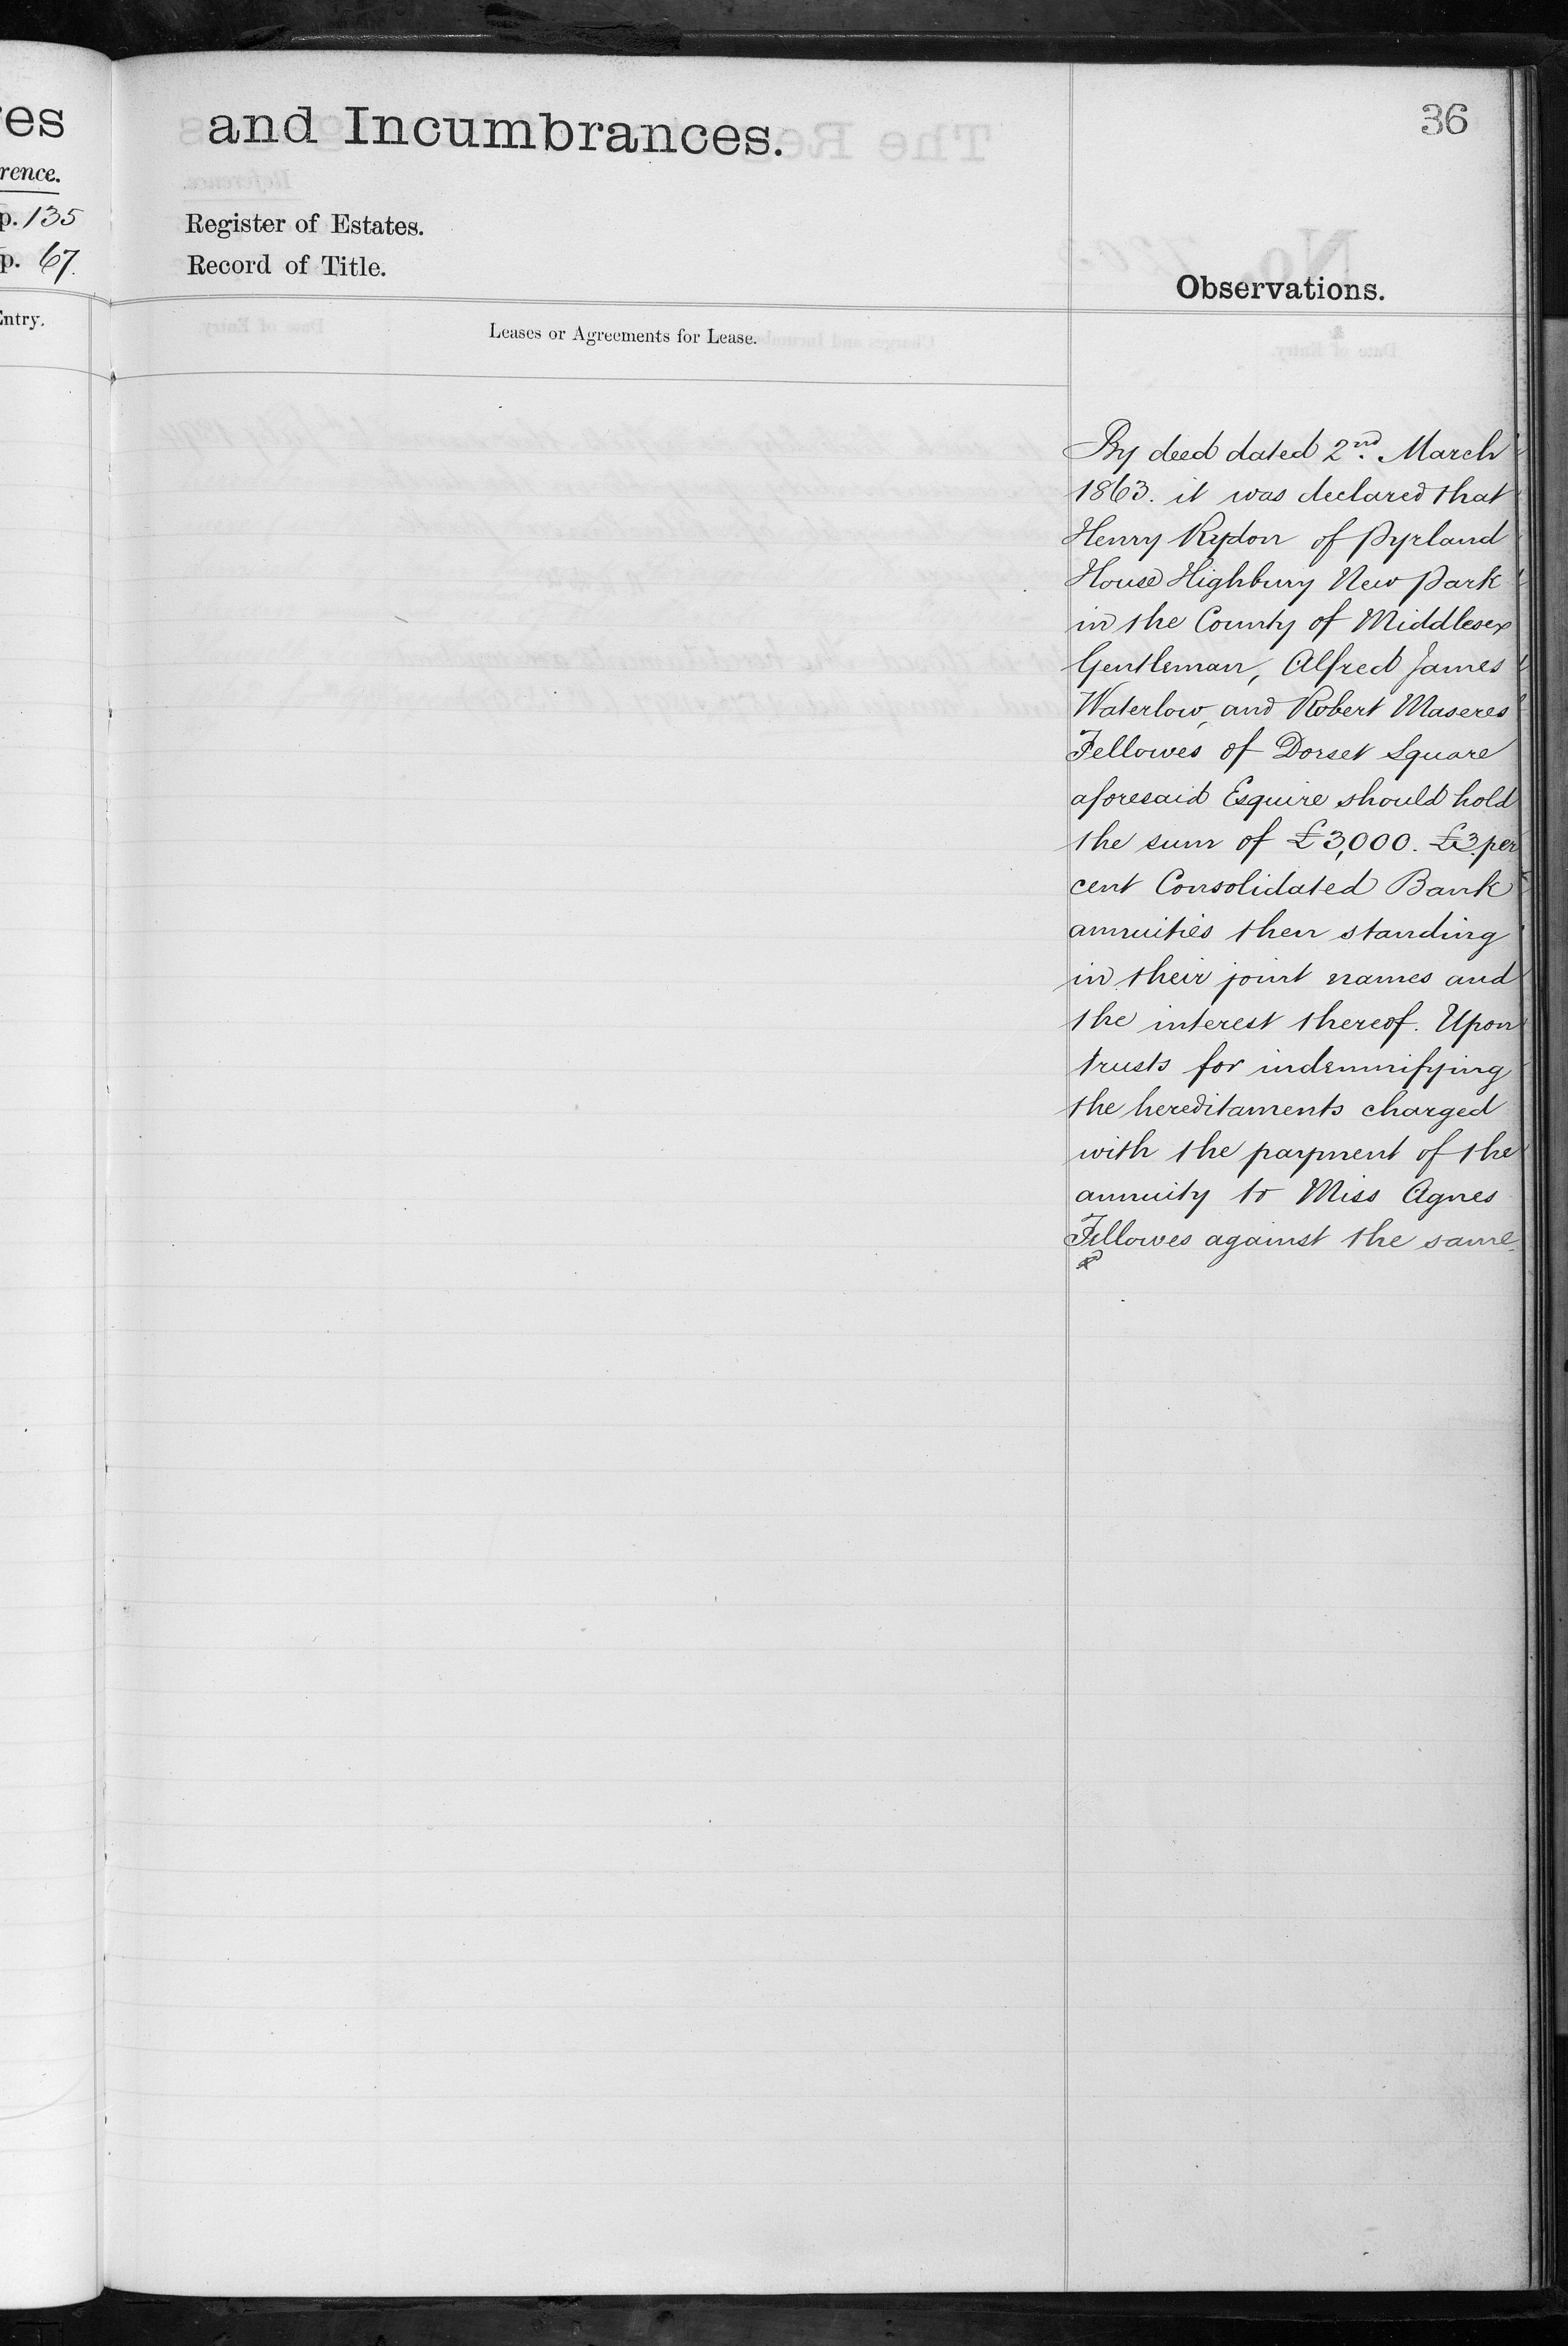 es
and Incumbrances.
36
rence.
p. 135
Register of Estates.
p. 67.
Record of Title.
Observations.
Entry.
Leases or Agreements for Lease.
By deed dated 2nd. March
1863. it was declared that
Henry Rydon of Pyrland
House Highbury New Park
in the County of Middlesex
Gentleman, Alfred James
Waterlow, and Robert Maseres
Fellowes of Dorset Square
aforesaid Esquire should hold
the sum of £3,000. £3. per
cent Consolidated Bank
annuities then standing
in their joint names and
the interest thereof. Upon
trusts for indemnifying
the hereditaments charged
with the payment of the
annuity to Miss Agnes
Fellowes against the same.